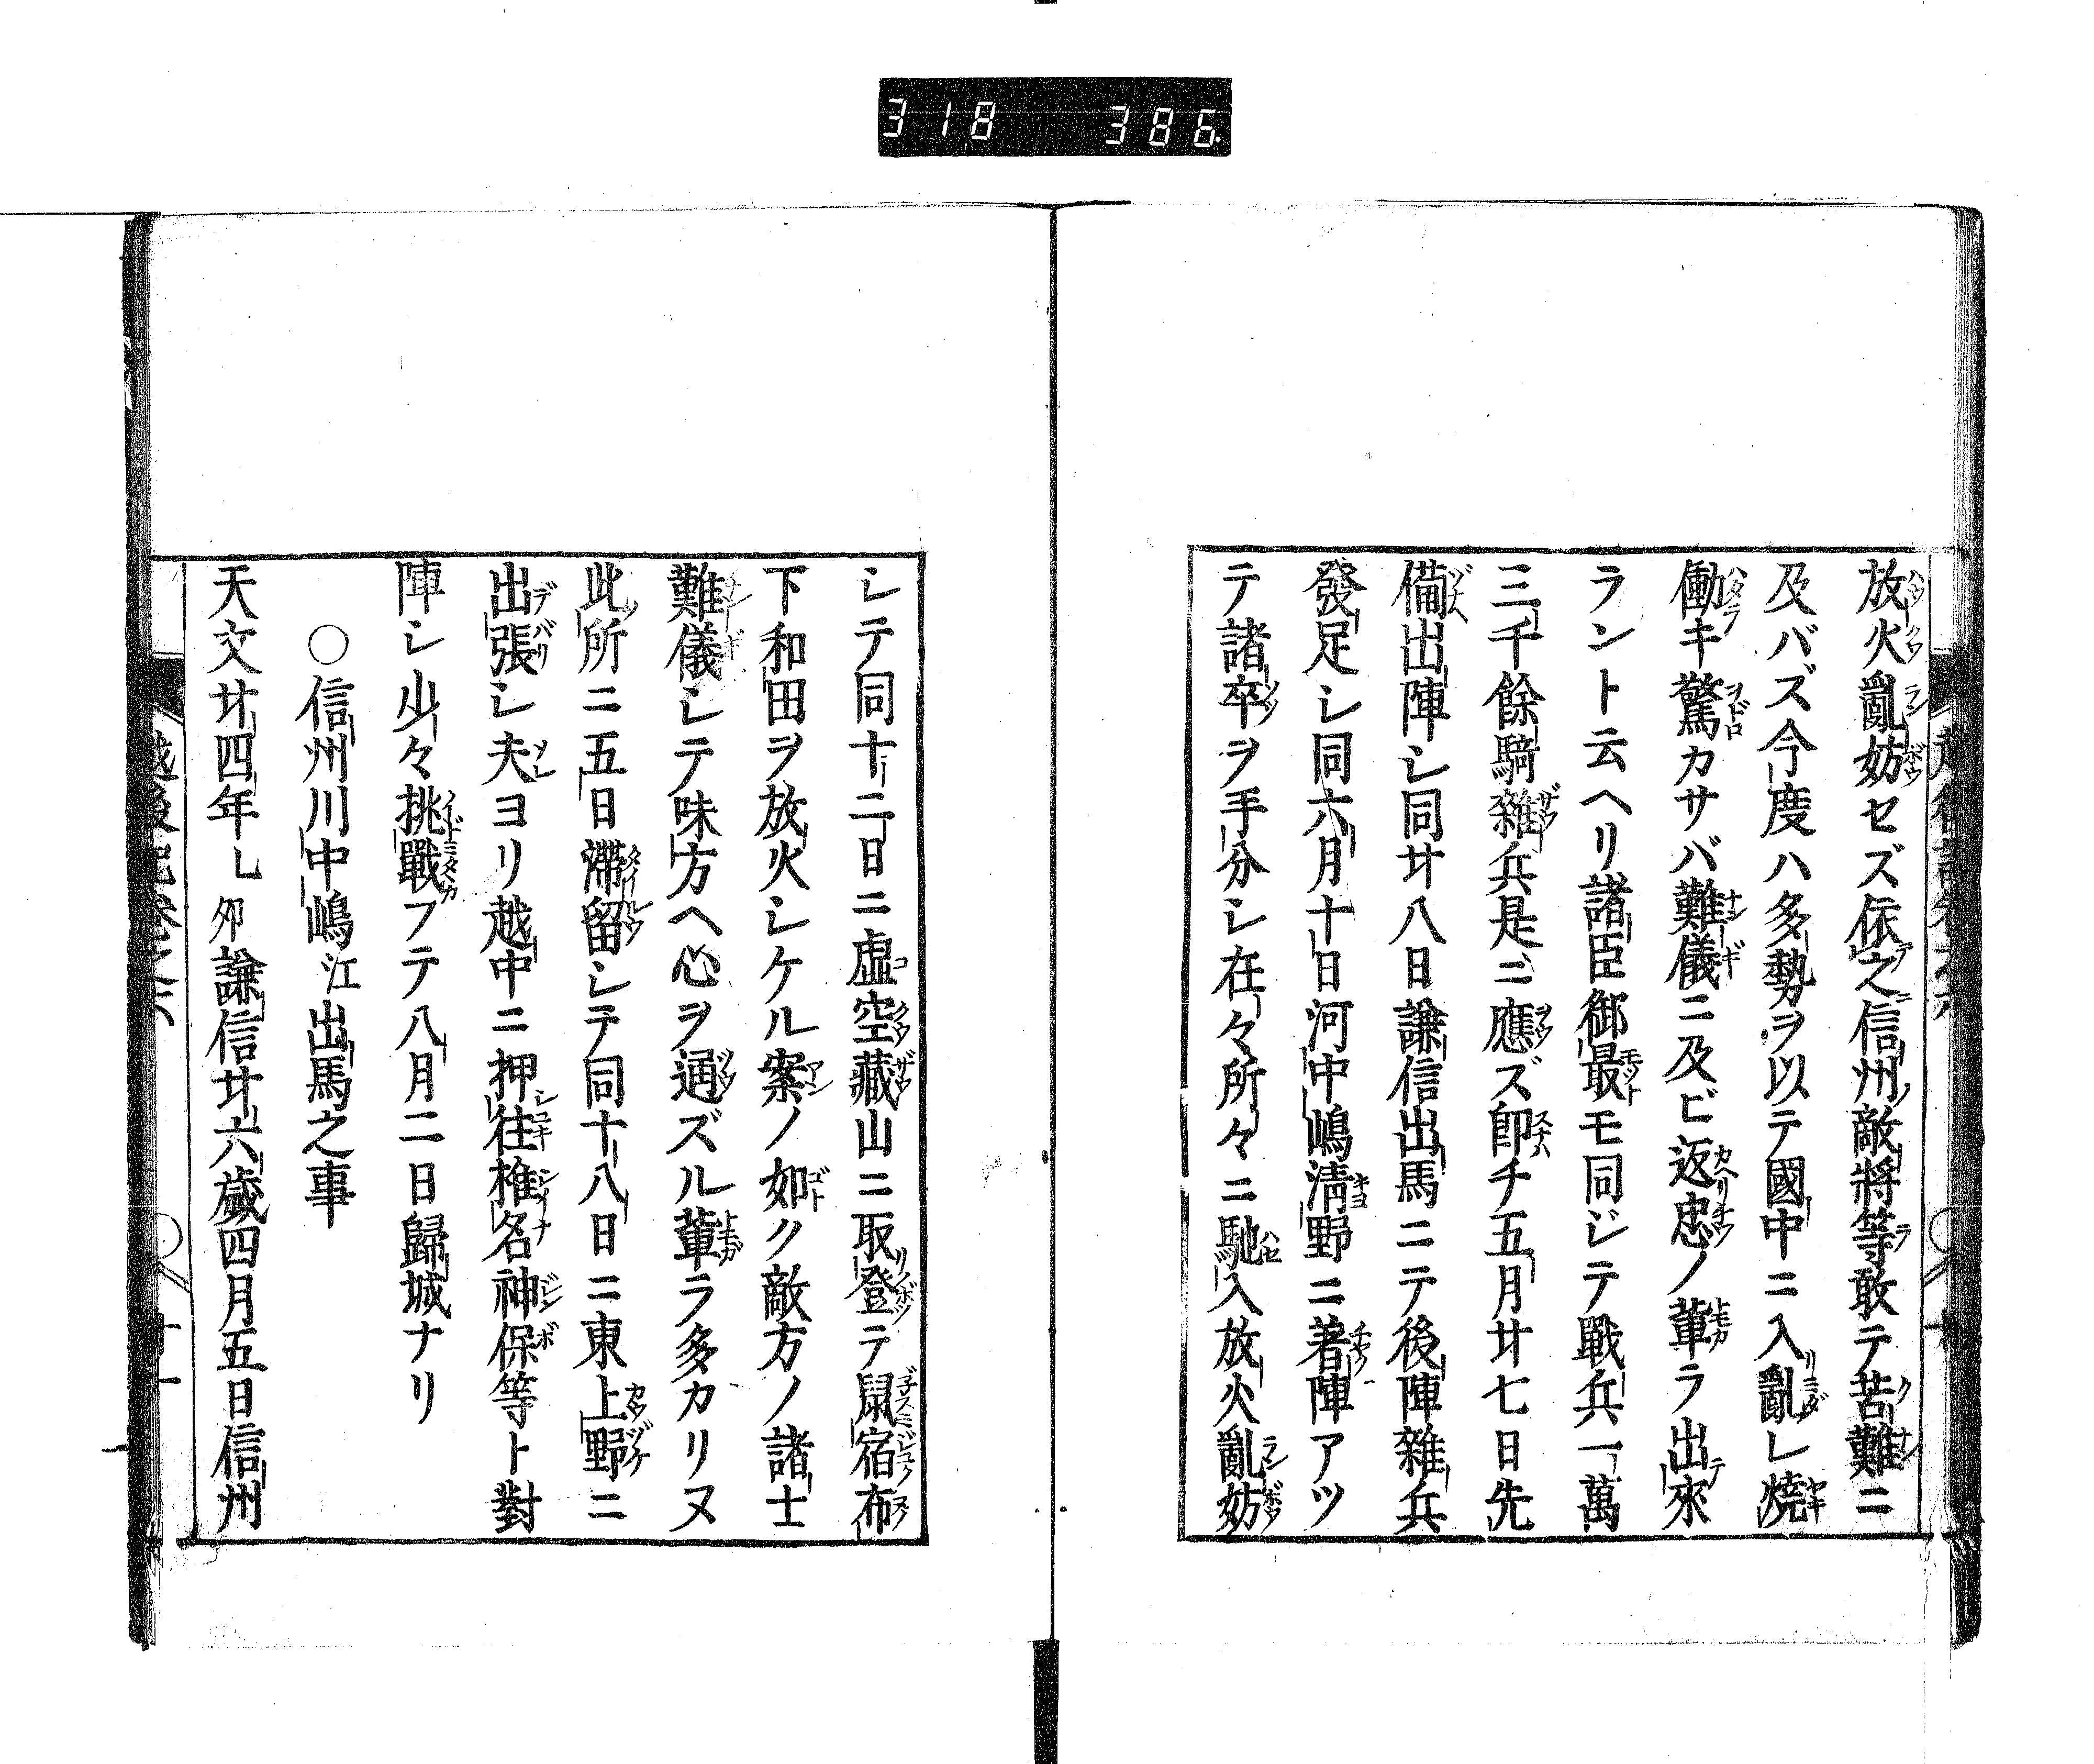 318 386
放火亂妨セズ依之信州敵將等敢テ苦難ニ
及バズ今度ハ多勢ヲ以テ國中ニ入亂レ燒
働キ驚カサバ難儀ニ及ビ返忠ノ輩ラ出來
ラント云ヘリ諸臣御最モ同ジテ戰兵一萬
三千餘騎雜兵是ニ應ズ卽チ五月廿七日先
備出陣シ同廿八日謙信出馬ニテ後陣雜兵
發足シ同六月十日河中嶋淸野ニ著陣アツ
テ諸卒ヲ手分シ在々所々ニ馳入放火亂妨
シテ同十二日ニ虛空藏山ニ取登テ鼠宿布
下和田ヲ放火シケル案ノ如ク敵方ノ諸士
難儀シテ味方ヘ心ヲ通ズル輩ラ多カリヌ
此所ニ五日滯留シテ同十八日ニ東上野ニ
出張シ夫ヨリ越中ニ押往椎名神保等ト對
陣シ少々挑戰フテ八月二日歸城ナリ
○信州川中嶋江出馬之事
天文廿四年乚卯謙信廿六歲四月五日信州
越後記卷之六
廿一